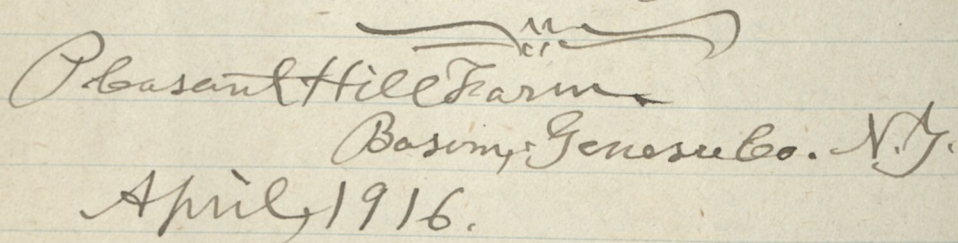 Pleasant Hill Farm.
Basom, Genesee Co. N.Y.
April, 1916.